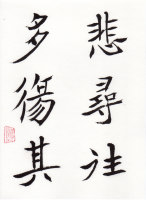 悲尋往
多傷其